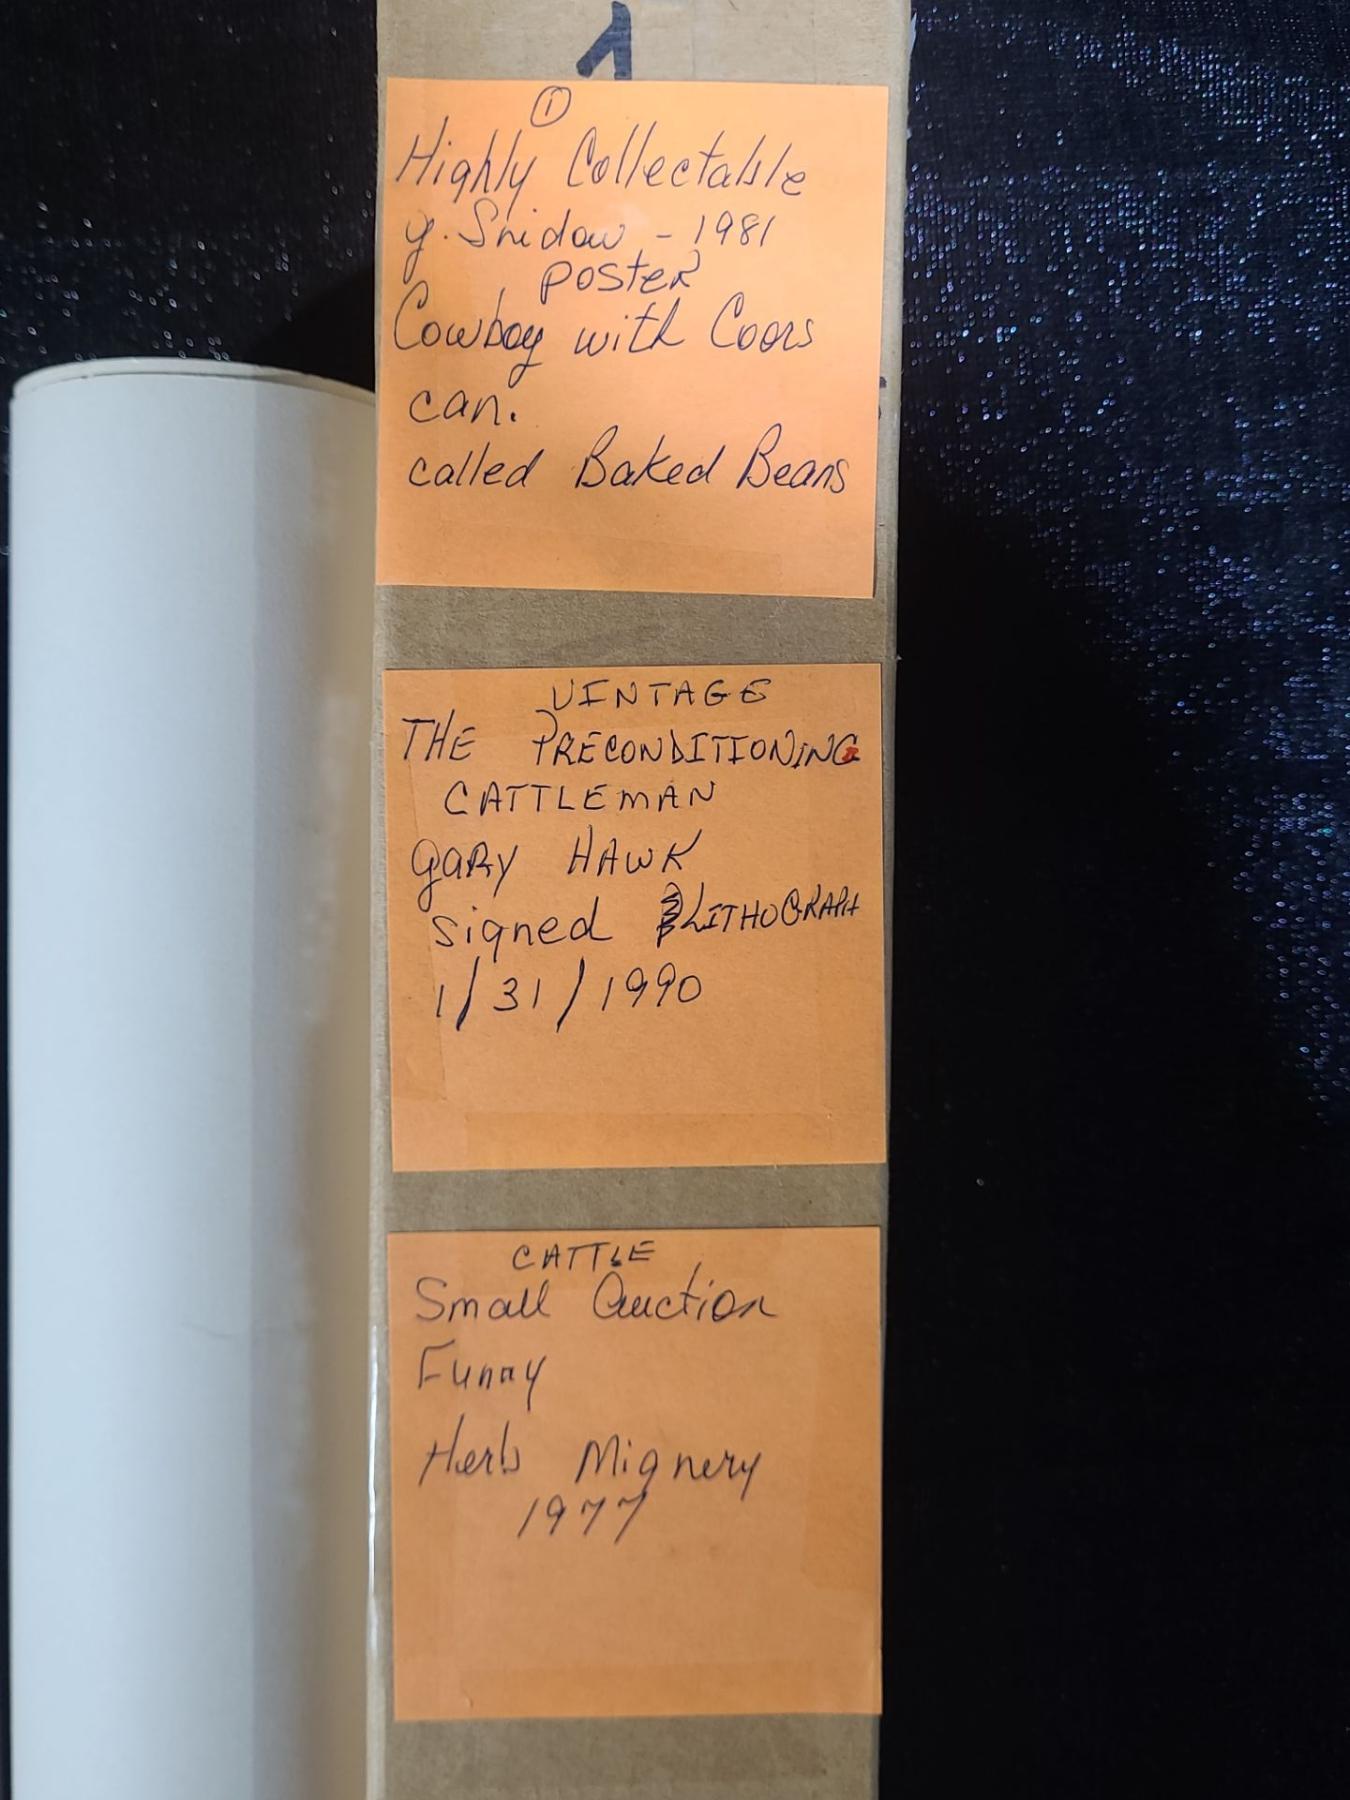 1
①
Highly Collectable
G. Snidow - 1981
poster
Cowboy with Coors
can.
called Baked Beans
VINTAGE
THE PRECONDITIONING
CATTLEMAN
GARY HAWK
signed LITHOGRAPH
1/31/1990
CATTLE
Small Auction
Funny
Herb Mignery
1977